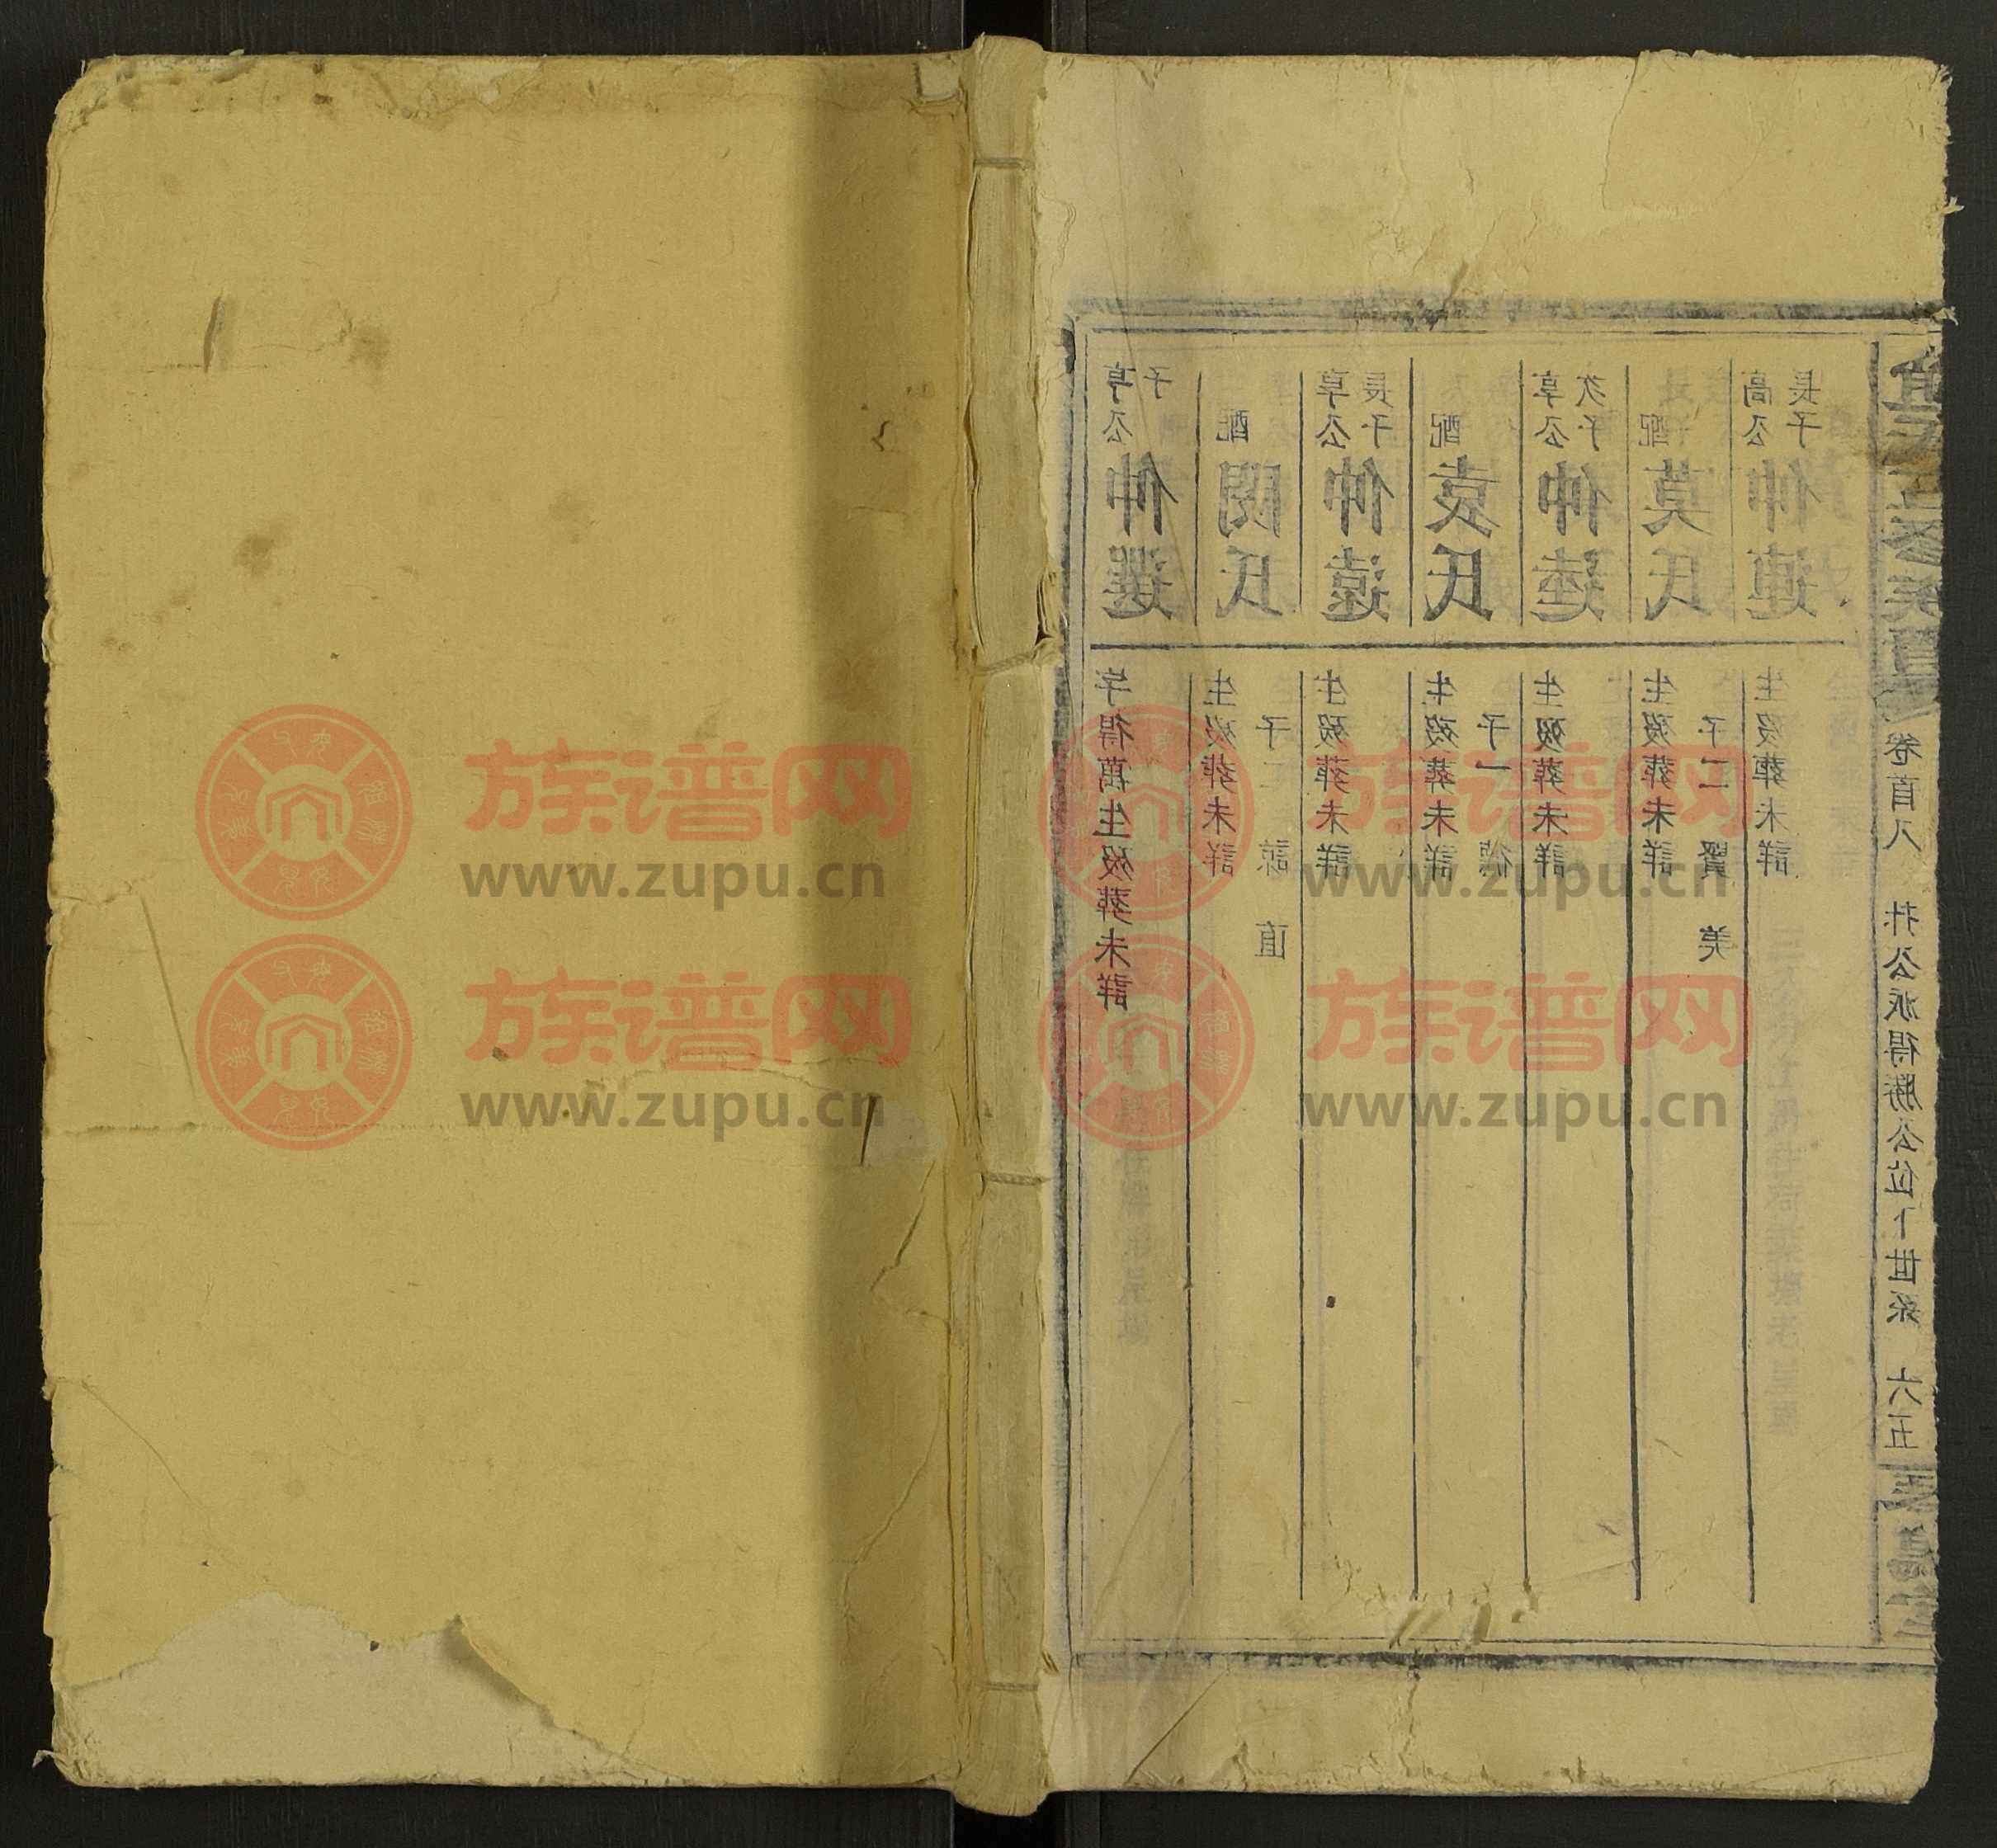 亨公
子
仲選
字得萬生歿葬未詳
配
氏
生歿葬未詳
子二 諒 直
享公
長子
仲遠
生歿葬未詳
配
袁氏
生歿葬未詳
子一 德
享公
次子
仲達
生歿葬未詳
配
莫氏
生歿葬未詳
子二 賢 美
高公
長子
仲連
生歿葬未詳
五修族譜
卷首八
公派得勝公位下世系 六五
族谱网
www.zupu.cn
族谱网
www.zupu.cn
族谱网
www.zupu.cn
族谱网
www.zupu.cn